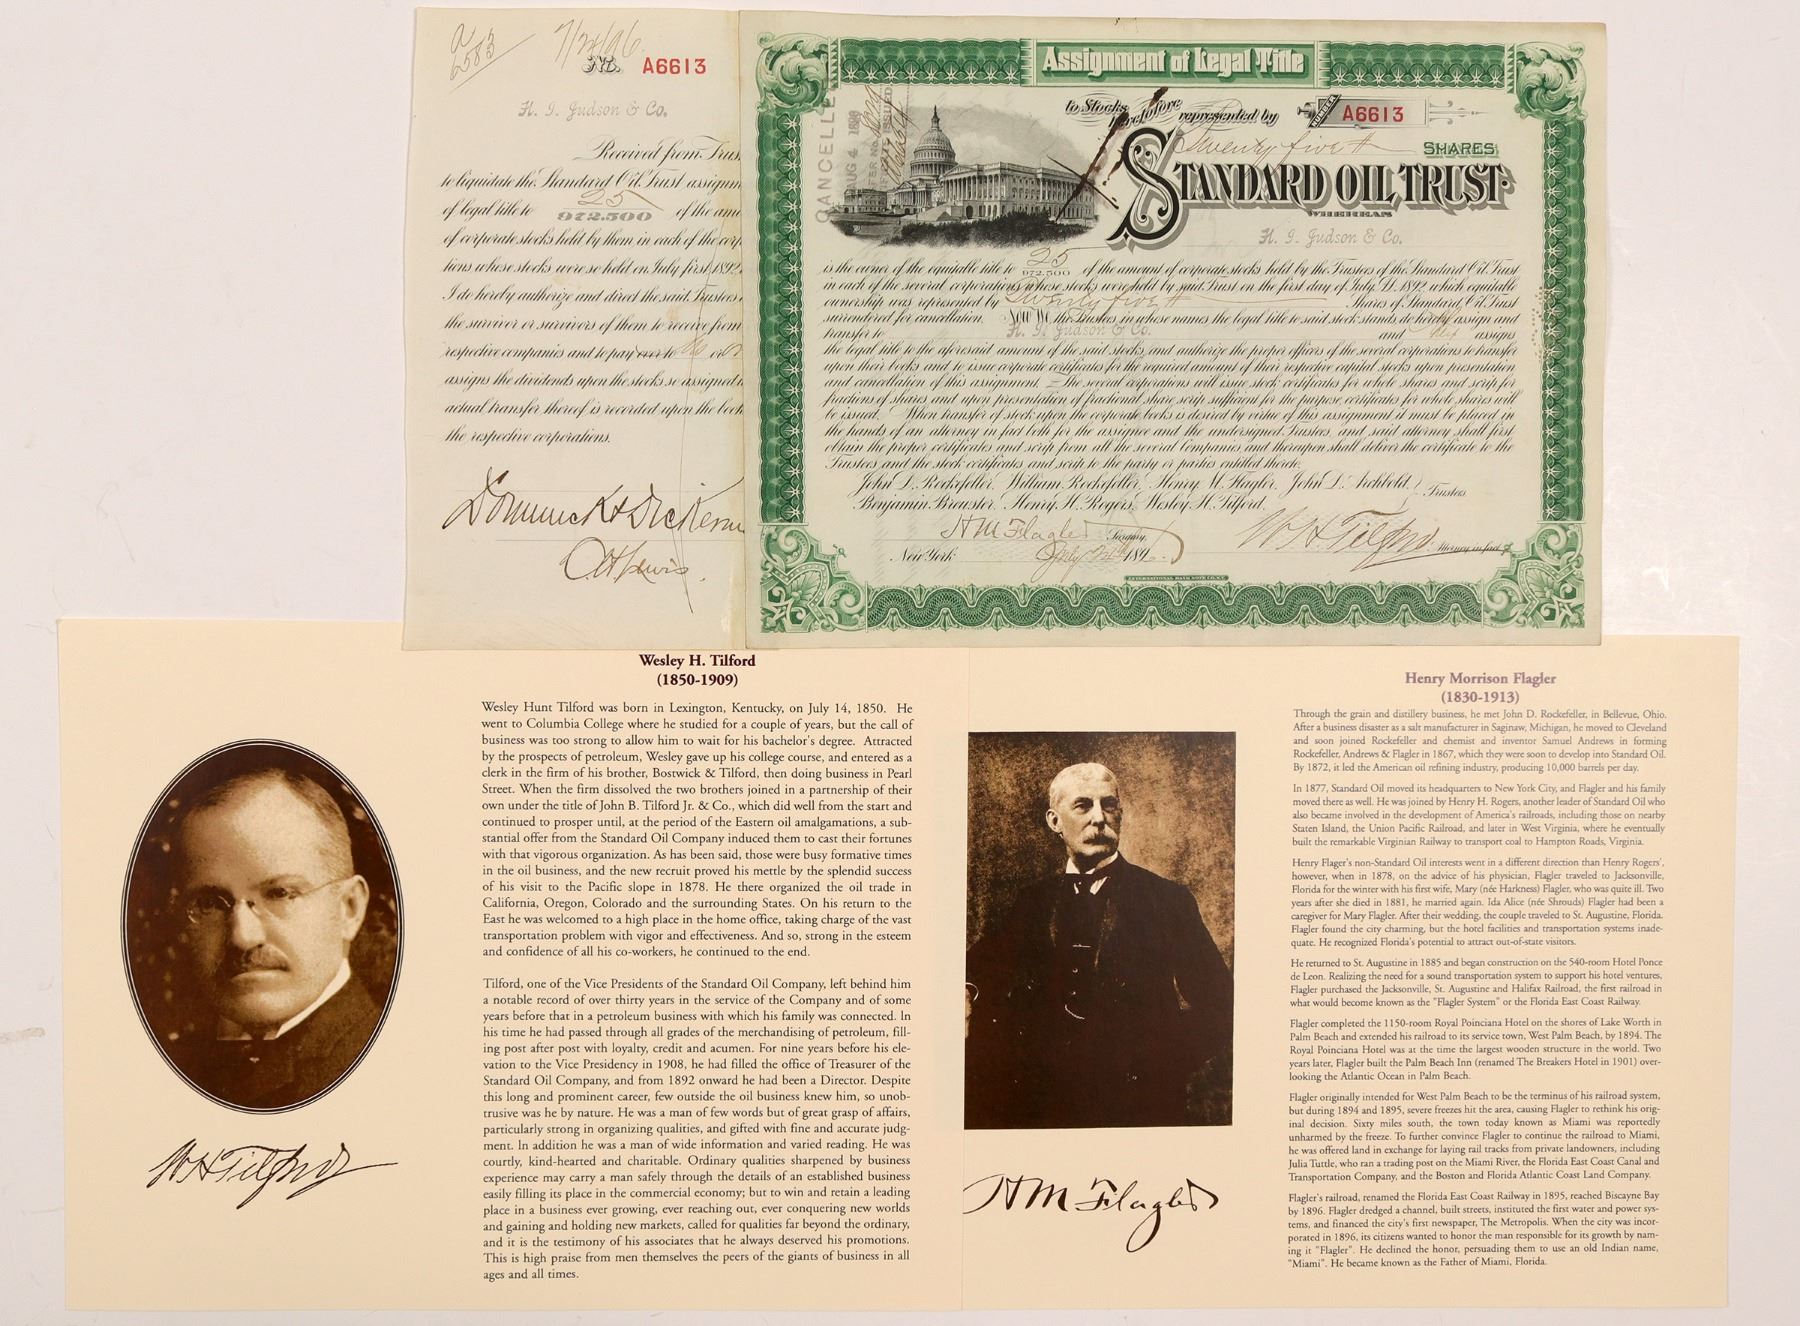 7/24/96
No. A6613
H. I. Judson & Co.
Received from Trus
to liquidate the Standard Oil Trust assignm
of legal title to 25
972.500 of the amo
of corporate stocks held by them in each of the corp
tions whose stocks were so held on July first, 1892
I do hereby authorize and direct the said Trustees
the survivor or survivors of them to receive from
respective companies and to pay over to or
assigns the dividends upon the stocks so assigned
actual transfer thereof is recorded upon the book
the respective corporations.
Assignment of Legal Title
to Stocks heretofore represented by NUMBER A6613
Twenty five SHARES
STANDARD OIL TRUST
WHEREAS
CANCELLED
AUG 4
H. I. Judson & Co.
is the owner of the equitable title to 25
972.500 of the amount of corporate stocks held by the Trustees of the Standard Oil Trust
in each of the several corporations whose stocks were held by said Trust on the first day of July A. 1892, which equitable
ownership was represented by Twenty five Shares of Standard Oil Trust
surrendered for cancellation. Now We the Trustees in whose names the legal title to said stock stands, do hereby assign and
transfer to H. I. Judson & Co. and assigns
the legal title to the aforesaid amount of the said stocks, and authorize the proper officers of the several corporations to transfer
upon their books and to issue corporate certificates for the required amount of their respective capital stocks upon presentation
and cancellation of this assignment. The several corporations will issue stock certificates for whole shares and scrip for
fractions of shares and upon presentation of fractional share scrip sufficient for the purpose, certificates for whole shares will
be issued. When transfer of stock upon the corporate books is desired by virtue of this assignment it must be placed in
the hands of an attorney in fact both for the assignee and the undersigned Trustees, and said attorney shall first
obtain the proper certificates and scrip from all the several Companies, and thereupon shall deliver the certificate to the
Trustees, and the stock certificates and scrip to the party or parties entitled thereto.
John D. Rockefeller, William Rockefeller, Henry M. Flagler, John D. Archbold,
Benjamin Brewster, Henry H. Rogers, Wesley H. Tilford. } Trustees.
H M Flagler Secretary.
W H Tilford Attorney in fact
New York July 24th 1896
INTERNATIONAL BANK NOTE CO. N.Y.
Wesley H. Tilford
(1850-1909)
Wesley Hunt Tilford was born in Lexington, Kentucky, on July 14, 1850. He
went to Columbia College where he studied for a couple of years, but the call of
business was too strong to allow him to wait for his bachelor's degree. Attracted
by the prospects of petroleum, Wesley gave up his college course, and entered as a
clerk in the firm of his brother, Bostwick & Tilford, then doing business in Pearl
Street. When the firm dissolved the two brothers joined in a partnership of their
own under the title of John B. Tilford Jr. & Co., which did well from the start and
continued to prosper until, at the period of the Eastern oil amalgamations, a sub-
stantial offer from the Standard Oil Company induced them to cast their fortunes
with that vigorous organization. As has been said, those were busy formative times
in the oil business, and the new recruit proved his mettle by the splendid success
of his visit to the Pacific slope in 1878. He there organized the oil trade in
California, Oregon, Colorado and the surrounding States. On his return to the
East he was welcomed to a high place in the home office, taking charge of the vast
transportation problem with vigor and effectiveness. And so, strong in the esteem
and confidence of all his co-workers, he continued to the end.
Tilford, one of the Vice Presidents of the Standard Oil Company, left behind him
a notable record of over thirty years in the service of the Company and of some
years before that in a petroleum business with which his family was connected. In
his time he had passed through all grades of the merchandising of petroleum, fill-
ing post after post with loyalty, credit and acumen. For nine years before his ele-
vation to the Vice Presidency in 1908, he had filled the office of Treasurer of the
Standard Oil Company, and from 1892 onward he had been a Director. Despite
this long and prominent career, few outside the oil business knew him, so unob-
trusive was he by nature. He was a man of few words but of great grasp of affairs,
particularly strong in organizing qualities, and gifted with fine and accurate judg-
ment. In addition he was a man of wide information and varied reading. He was
courtly, kind-hearted and charitable. Ordinary qualities sharpened by business
experience may carry a man safely through the details of an established business
easily filling its place in the commercial economy; but to win and retain a leading
place in a business ever growing, ever reaching out, ever conquering new worlds
and gaining and holding new markets, called for qualities far beyond the ordinary,
and it is the testimony of his associates that he always deserved his promotions.
This is high praise from men themselves the peers of the giants of business in all
ages and all times.
W H Tilford
Henry Morrison Flagler
(1830-1913)
Through the grain and distillery business, he met John D. Rockefeller, in Bellevue, Ohio.
After a business disaster as a salt manufacturer in Saginaw, Michigan, he moved to Cleveland
and soon joined Rockefeller and chemist and inventor Samuel Andrews in forming
Rockefeller, Andrews & Flagler in 1867, which they were soon to develop into Standard Oil.
By 1872, it led the American oil refining industry, producing 10,000 barrels per day.
In 1877, Standard Oil moved its headquarters to New York City, and Flagler and his family
moved there as well. He was joined by Henry H. Rogers, another leader of Standard Oil who
also became involved in the development of America's railroads, including those on nearby
Staten Island, the Union Pacific Railroad, and later in West Virginia, where he eventually
built the remarkable Virginian Railway to transport coal to Hampton Roads, Virginia.
Henry Flager's non-Standard Oil interests went in a different direction than Henry Rogers',
however, when in 1878, on the advice of his physician, Flagler traveled to Jacksonville,
Florida for the winter with his first wife, Mary (née Harkness) Flagler, who was quite ill. Two
years after she died in 1881, he married again. Ida Alice (née Shrouds) Flagler had been a
caregiver for Mary Flagler. After their wedding, the couple traveled to St. Augustine, Florida.
Flagler found the city charming, but the hotel facilities and transportation systems inade-
quate. He recognized Florida's potential to attract out-of-state visitors.
He returned to St. Augustine in 1885 and began construction on the 540-room Hotel Ponce
de Leon. Realizing the need for a sound transportation system to support his hotel ventures,
Flagler purchased the Jacksonville, St. Augustine and Halifax Railroad, the first railroad in
what would become known as the "Flagler System" or the Florida East Coast Railway.
Flagler completed the 1150-room Royal Poinciana Hotel on the shores of Lake Worth in
Palm Beach and extended his railroad to its service town, West Palm Beach, by 1894. The
Royal Poinciana Hotel was at the time the largest wooden structure in the world. Two
years later, Flagler built the Palm Beach Inn (renamed The Breakers Hotel in 1901) over-
looking the Atlantic Ocean in Palm Beach.
Flagler originally intended for West Palm Beach to be the terminus of his railroad system,
but during 1894 and 1895, severe freezes hit the area, causing Flagler to rethink his orig-
inal decision. Sixty miles south, the town today known as Miami was reportedly
unharmed by the freeze. To further convince Flagler to continue the railroad to Miami,
he was offered land in exchange for laying rail tracks from private landowners, including
Julia Tuttle, who ran a trading post on the Miami River, the Florida East Coast Canal and
Transportation Company, and the Boston and Florida Atlantic Coast Land Company.
Flagler's railroad, renamed the Florida East Coast Railway in 1895, reached Biscayne Bay
by 1896. Flagler dredged a channel, built streets, instituted the first water and power sys-
tems, and financed the city's first newspaper, The Metropolis. When the city was incor-
porated in 1896, its citizens wanted to honor the man responsible for its growth by nam-
ing it "Flagler". He declined the honor, persuading them to use an old Indian name,
"Miami". He became known as the Father of Miami, Florida.
H M Flagler